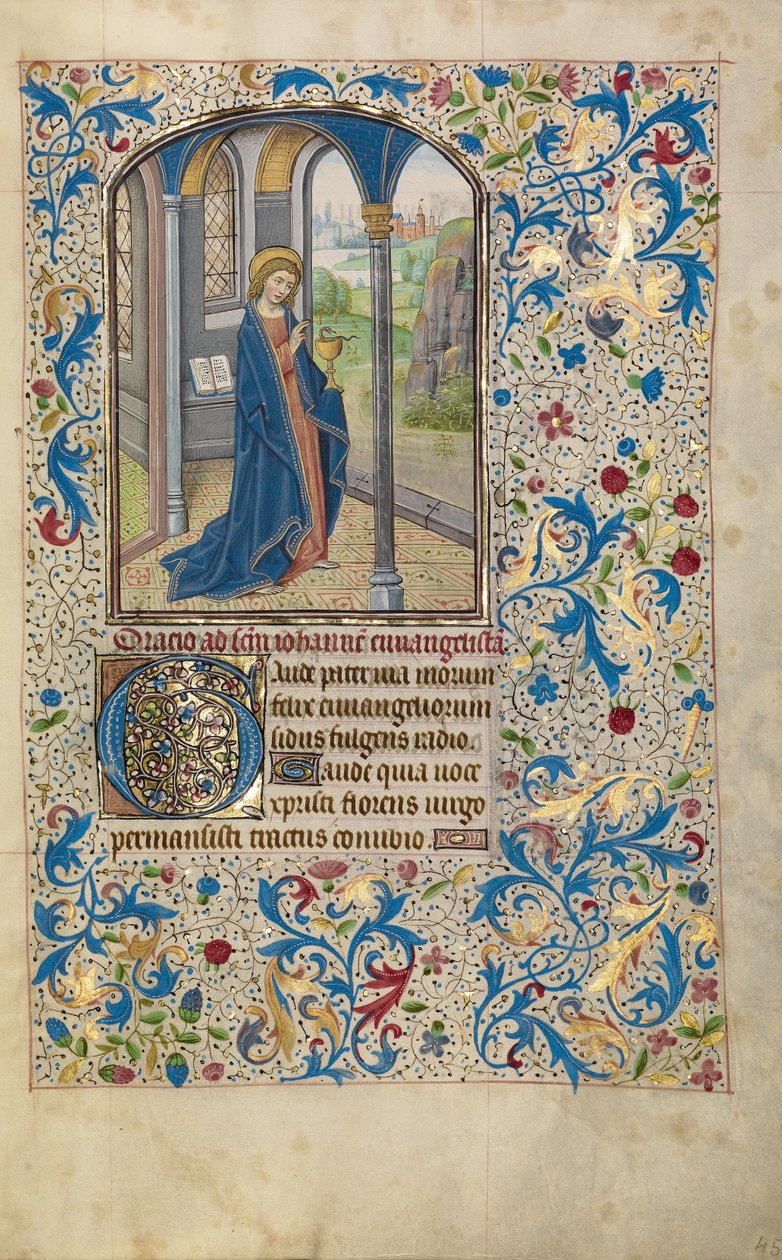 Oracio ad sc̄m iohannē euuangelistā
Gaude pater uia morum
felix euuangeliorum
sidus fulgens radio.
Gaude quia uoce
xpristi florens uirgo
permansisti tractus conubio.
45